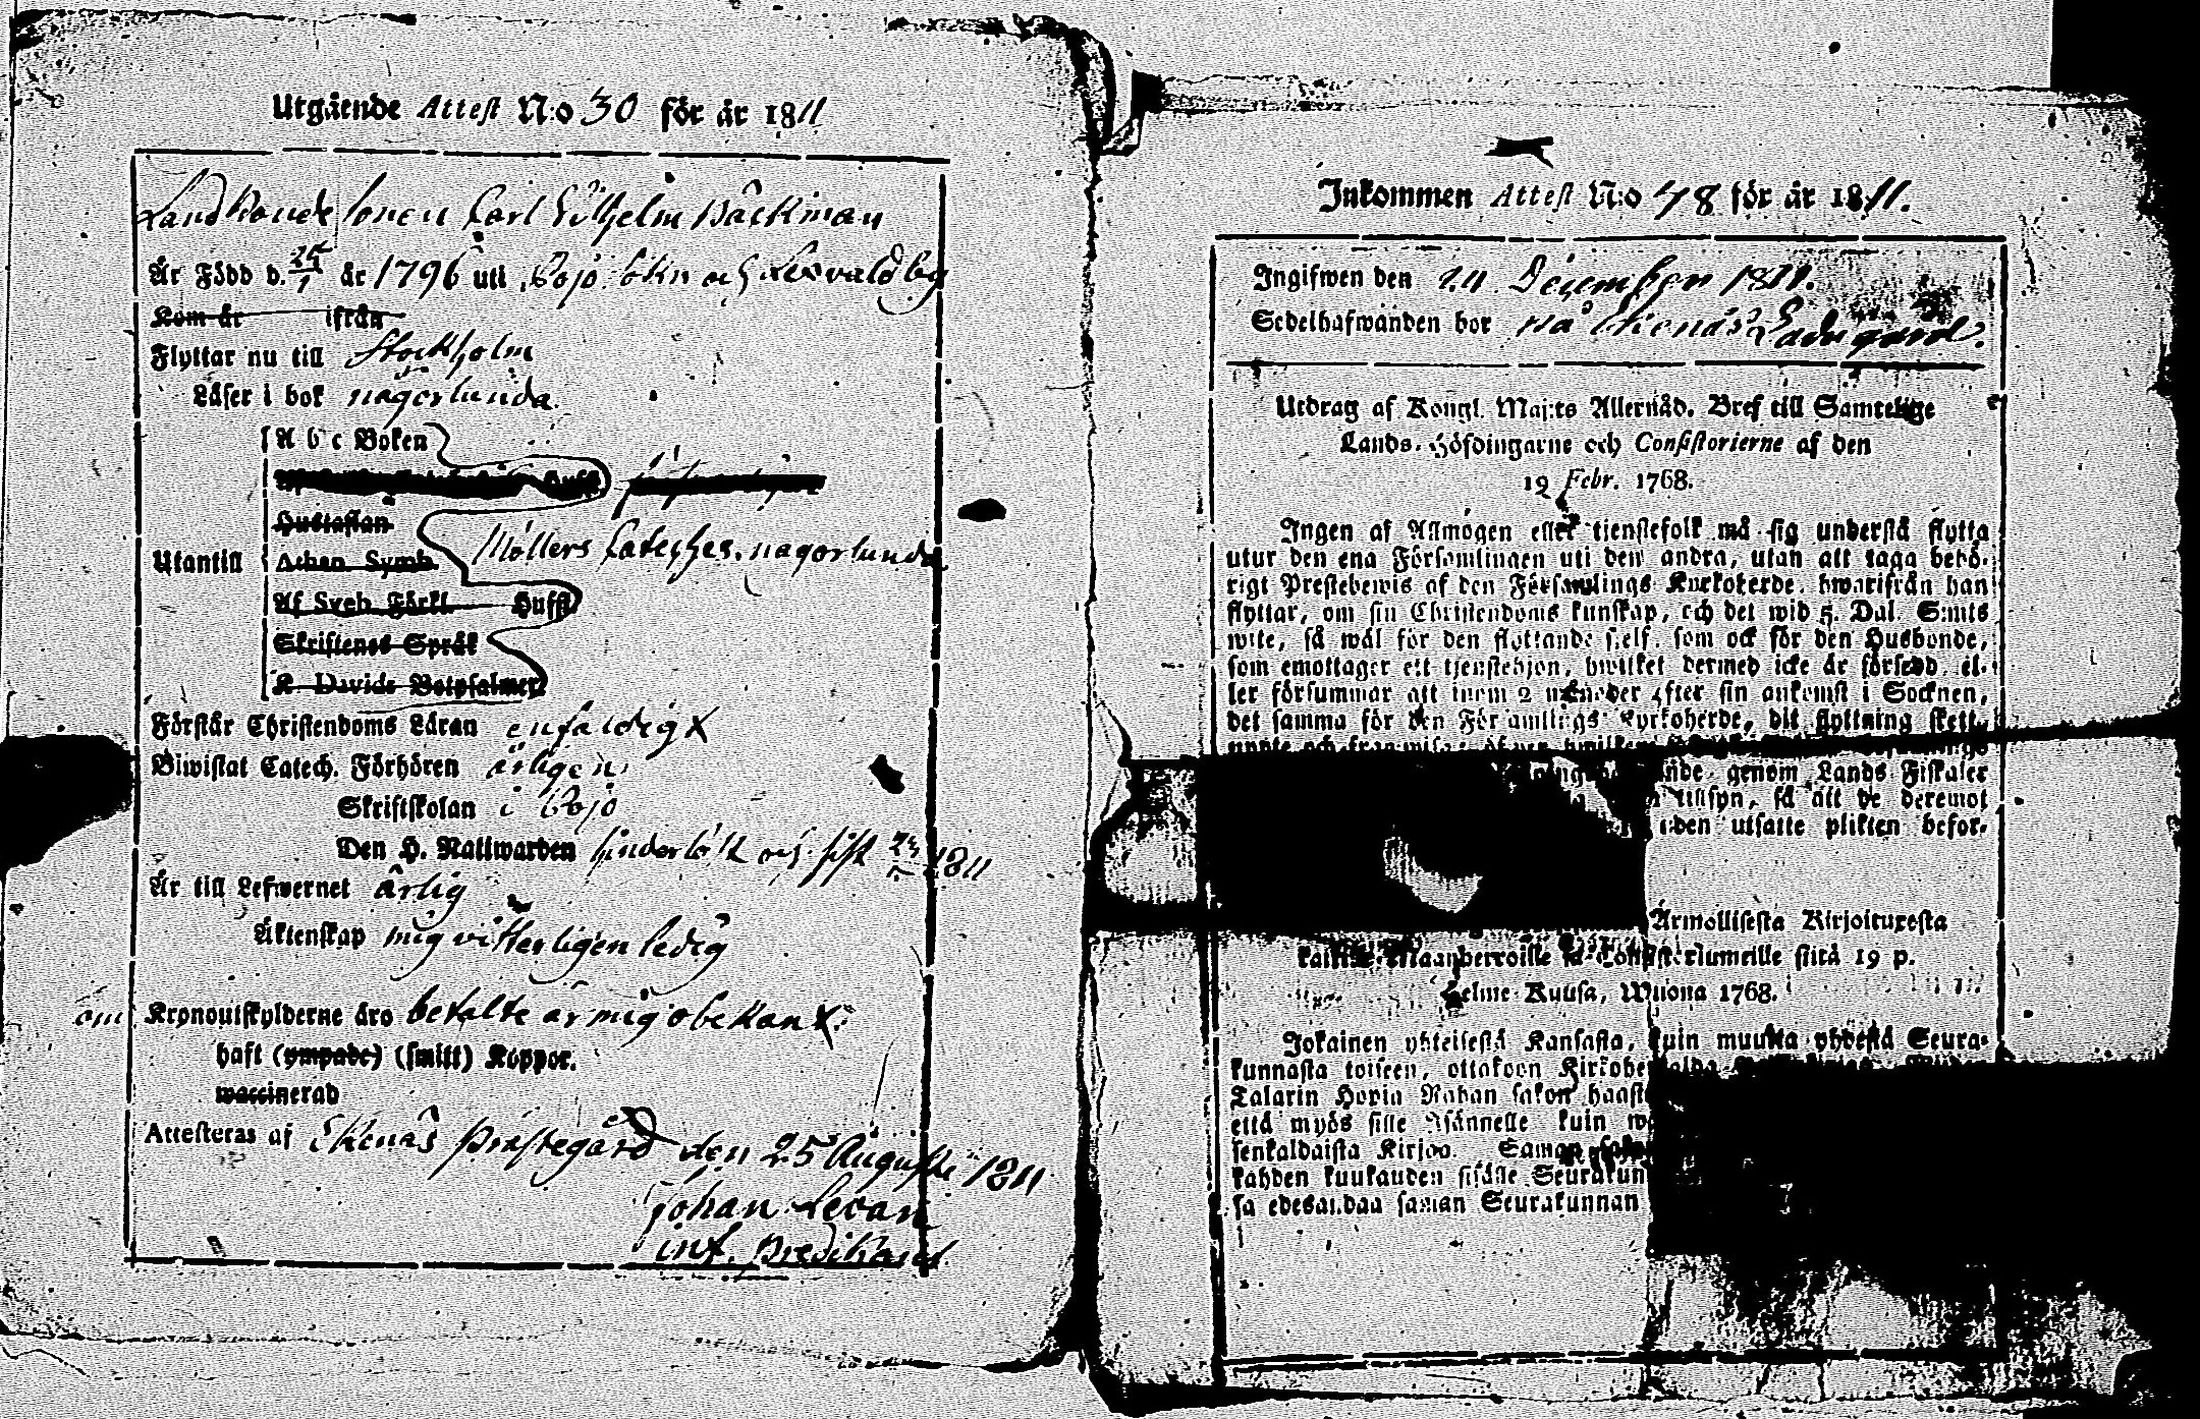 Utgående Attest N:o 30 för år 1811
Landbonde sonen Carl Wilhelm Bäckman
Är Född d. 25/1 år 1796 uti Pojo sokn och by
Kom år ifrån
Flyttar nu till Stockholm
Läser i bok någorlunda.
A b c Boken
Huff
Hustaflan
Utantill
Athan. Symb.
Möllers Cateches. någorlunda
Af Sveb. Förkl. Huff
Skriftenes Språk
K. Davids Botpsalmer
Förstår Christendoms Läran enfaldigt
Biwistat Catech. Förhören årligen
Skriftskolan i Pojo
Den H. Nattwarden och sist 1811
Är till Lefwernet ärlig
Äktenskap mig vitterligen ledig
om Kronoutskylderne äro betalte är mig obekant.
haft (ympade) (smitt) Koppor.
waccinerad
Attesteras af Ekenäs Prästegård den 25 Augusti 1811
Johan Levan
int. Predikant.
Inkommen Attest N:o 78 för år 1811.
Ingifwen den 24 December 1811.
Sedelhafwanden bor Ladugård.
Utdrag af Kongl. Maj:ts Allernåd. Bref till Samtelige
Lands-Höfdingarne och Consistorierne af den
19 Febr. 1768.
Ingen af Allmogen eller tienstefolk må sig understå flytta
utur den ena Församlingen uti den andra, utan att taga behö-
rigt Prestebewis af den Församlings Kyrkoherde, hwarifrån han
flyttar, om sin Christendoms kunskap, och det wid 5. Dal. S:mts
wite, så wäl för den flyttande sjelf, som ock för den Husbonde,
som emottager ett tjenstehjon, hwilket dermed icke är försedd, el-
ler försummar att inom 2 månader efter sin ankomst i Socknen,
det samma för den Församlings Kyrkoherde, dit flyttning skett,
genom Lands Fiskaler
tillsyn, så att de deremot
utsatte plikten befor-
Armollisesta Kirjoituxesta
Maanherroille ja Consistoriumeille siitä 19 p.
Helme-Kuusa, Wuona 1768.
Jokainen yhteisestä Kansasta, kuin muutta yhdestä Seura-
kunnasta toiseen, ottakoon
Talarin Hopia Rahan sakon
että myös sille Isännelle kuin
senkaldaista Kirjaa. Saman
kahden kuukauden sisälle Seurakun
sa edesandaa saman Seurakunnan